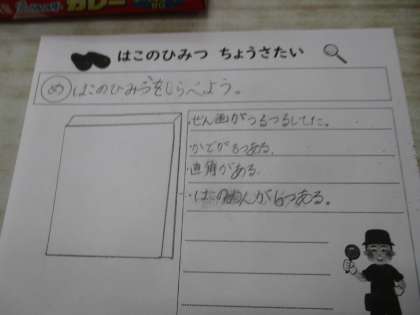 カレー
はこのひみつ ちょうさたい
め はこのひみつをしらべよう。
・ぜん面がつるつるしてた。
・かどが8つある。
・直角がある。
・はこの面が6つある。